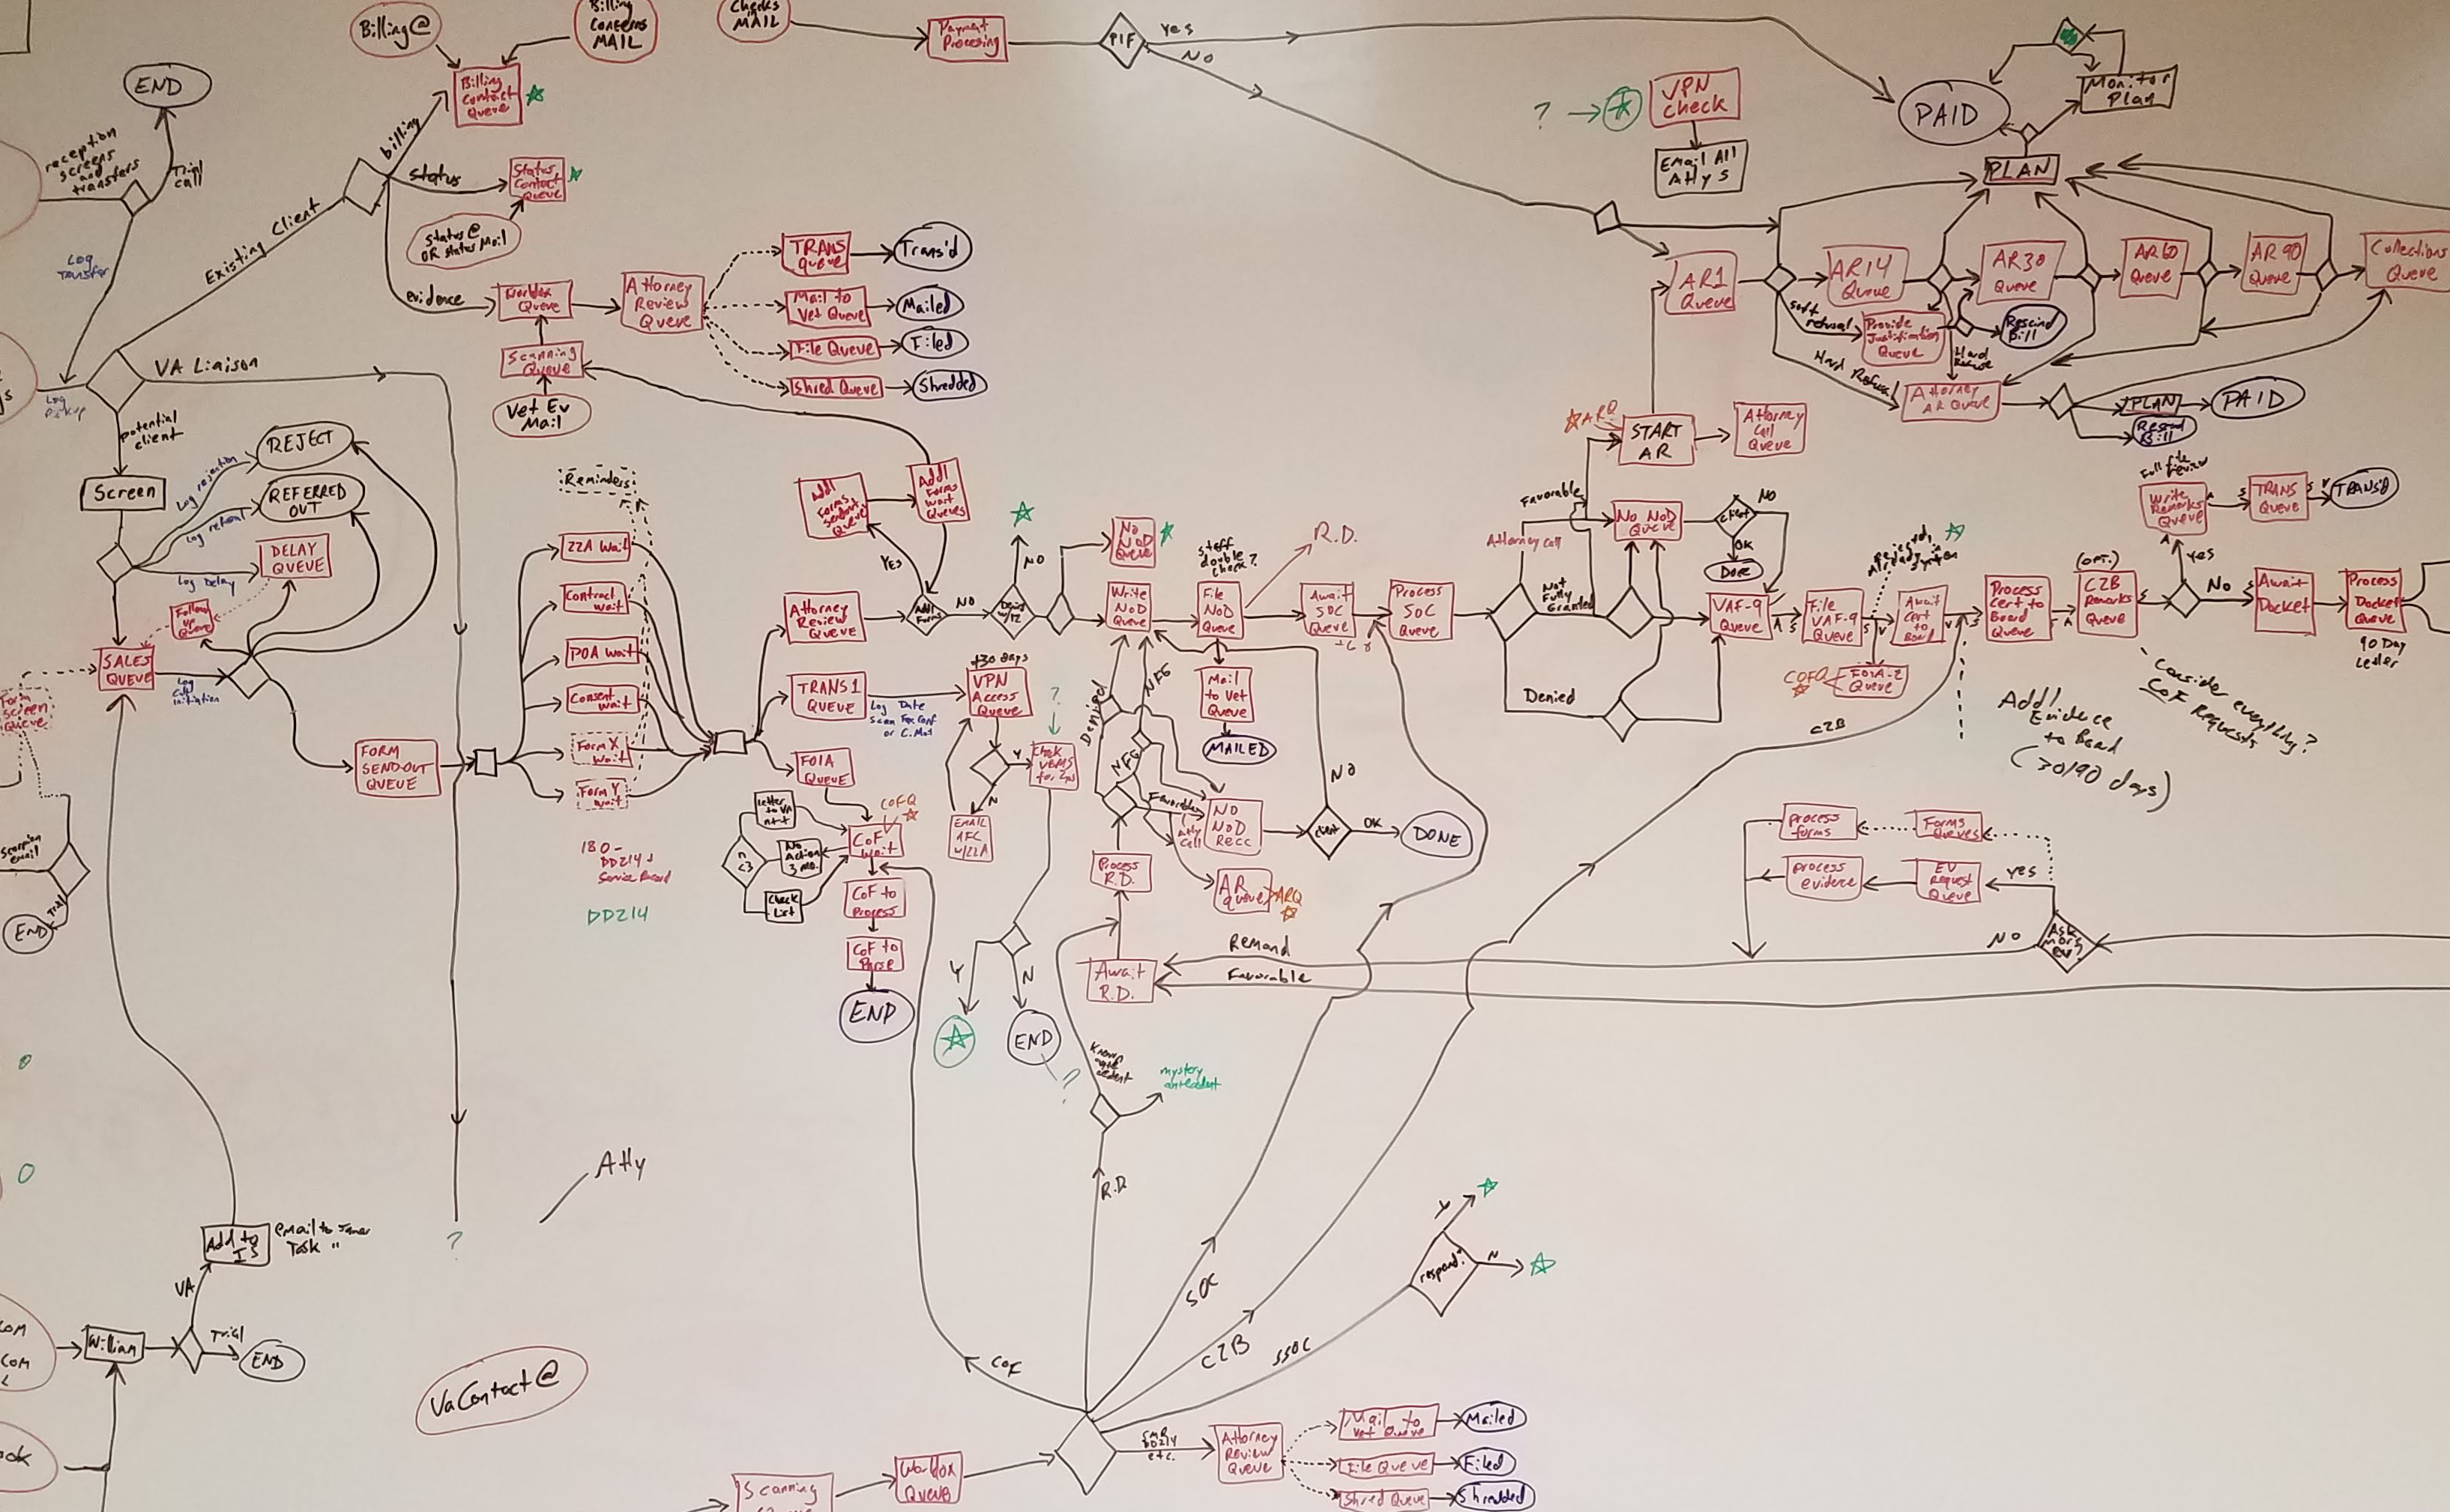 Billing@
Billing
Concerns
MAIL
Checks
MAIL
Payment
Processing
PIF
Yes
No
END
reception
screens
and
transfers
Trial
call
Log
Transfer
Billing
Contact
Queue
billing
status
Status
Contact
Queue
Status@
OR Status Mail
Existing Client
evidence
Queue
Attorney
Review
Queue
TRANS
Queue
Trans'd
Mail to
Vet Queue
Mailed
File Queue
Filed
Shred Queue
Shredded
Scanning
Queue
Vet Ev
Mail
? →
VPN
Check
Email All
Attys
PAID
Monitor
Plan
PLAN
AR1
Queue
AR14
Queue
AR30
Queue
AR60
Queue
AR90
Queue
Collections
Queue
soft
refusal
Provide
Justification
Queue
Rescind
Bill
Hard
Refuse
Hard Refusal
Attorney
AR Queue
PLAN
PAID
Bill
VA Liaison
Log
Pickup
potential
client
Screen
Log rejection
REJECT
REFERRED
OUT
Log Delay
DELAY
QUEUE
Follow
up
Queue
SALES
QUEUE
Log
Call
Initiation
Screen
Queue
email
Trial
END
FORM
SEND-OUT
QUEUE
Reminders
22A Wait
Contract
wait
POA wait
Consent
wait
Form X
wait
Form Y
wait
180-
DD214
Service Record
DD214
Add'l
Forms
Sendout
Queue
Add'l
Forms
Wait
Queues
YES
Add'l
Forms
NO
NO
Attorney
Review
Queue
TRANS 1
QUEUE
Log Date
FOIA
QUEUE
+30 days
VPN
Access
Queue
Y
N
EMAIL
w/22A
?
Check
VBMS
Letter
to VA
n++
n
<3
No
Action
3 mo.
Check
List
COFQ
CoF
Wait
CoF to
Process
CoF to
Parse
END
Y
N
END
?
No
NOD
Queue
Write
NOD
Queue
staff
double
check?
File
NOD
Queue
R.D.
Await
SOC
Queue
Process
SOC
Queue
Mail
to Vet
Queue
MAILED
Denied
NFG
NFG
Favorable
Atty
call
NO
NOD
Recc
client
NO
OK
DONE
AR
Queue
ARQ
Process
R.D.
Await
R.D.
Remand
Favorable
Known
antecedent
mystery
antecedent
R.D.
ARQ
START
AR
Attorney
Call
Queue
Favorable
Attorney Call
No NOD
Queue
client
NO
OK
DONE
Not
Fully
Granted
Denied
VAF-9
Queue
File
VAF-9
Queue
Rejected:
Already in
System
Await
Cert to
Board
COFQ
FOIA-2
Queue
Process
Cert to
Board
Queue
(OPT.)
C2B
Remarks
Queue
Full file
Review
Write
Remarks
Queue
TRANS
Queue
TRANS'D
Yes
No
Await
Docket
Process
Docket
Queue
90 Day
Letter
Consider everything?
CoF Requests
Add'l
Evidence
to Board
(30/90 days)
C2B
process
forms
Forms
Queues
process
evidence
EV
Request
Queue
yes
NO
Ask
more
ev?
Atty
?
Add to
IS
Task "
VA
William
Trial
END
VaContact@
COF
SOC
C2B
SSOC
respond?
Y
N
Scanning
Workbox
Queue
DD214
etc.
Attorney
Review
Queue
Mail to
Vet Queue
Mailed
File Queue
Filed
Shred Queue
Shredded